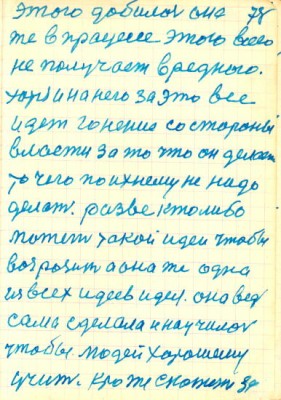 этого добился она 78
же в процессе этого всего
не получает вредного.
хотя и на него за это все
идет гонение со стороны
власти за то что он делает
то чего по ихнему не надо
делат. разве кто либо
может такой идеи чтобы
возрозит а она же одна
из всех идеев идея. она вед
сама сделала и научилас
чтобы людей хорошему
учит. кто же скажет за